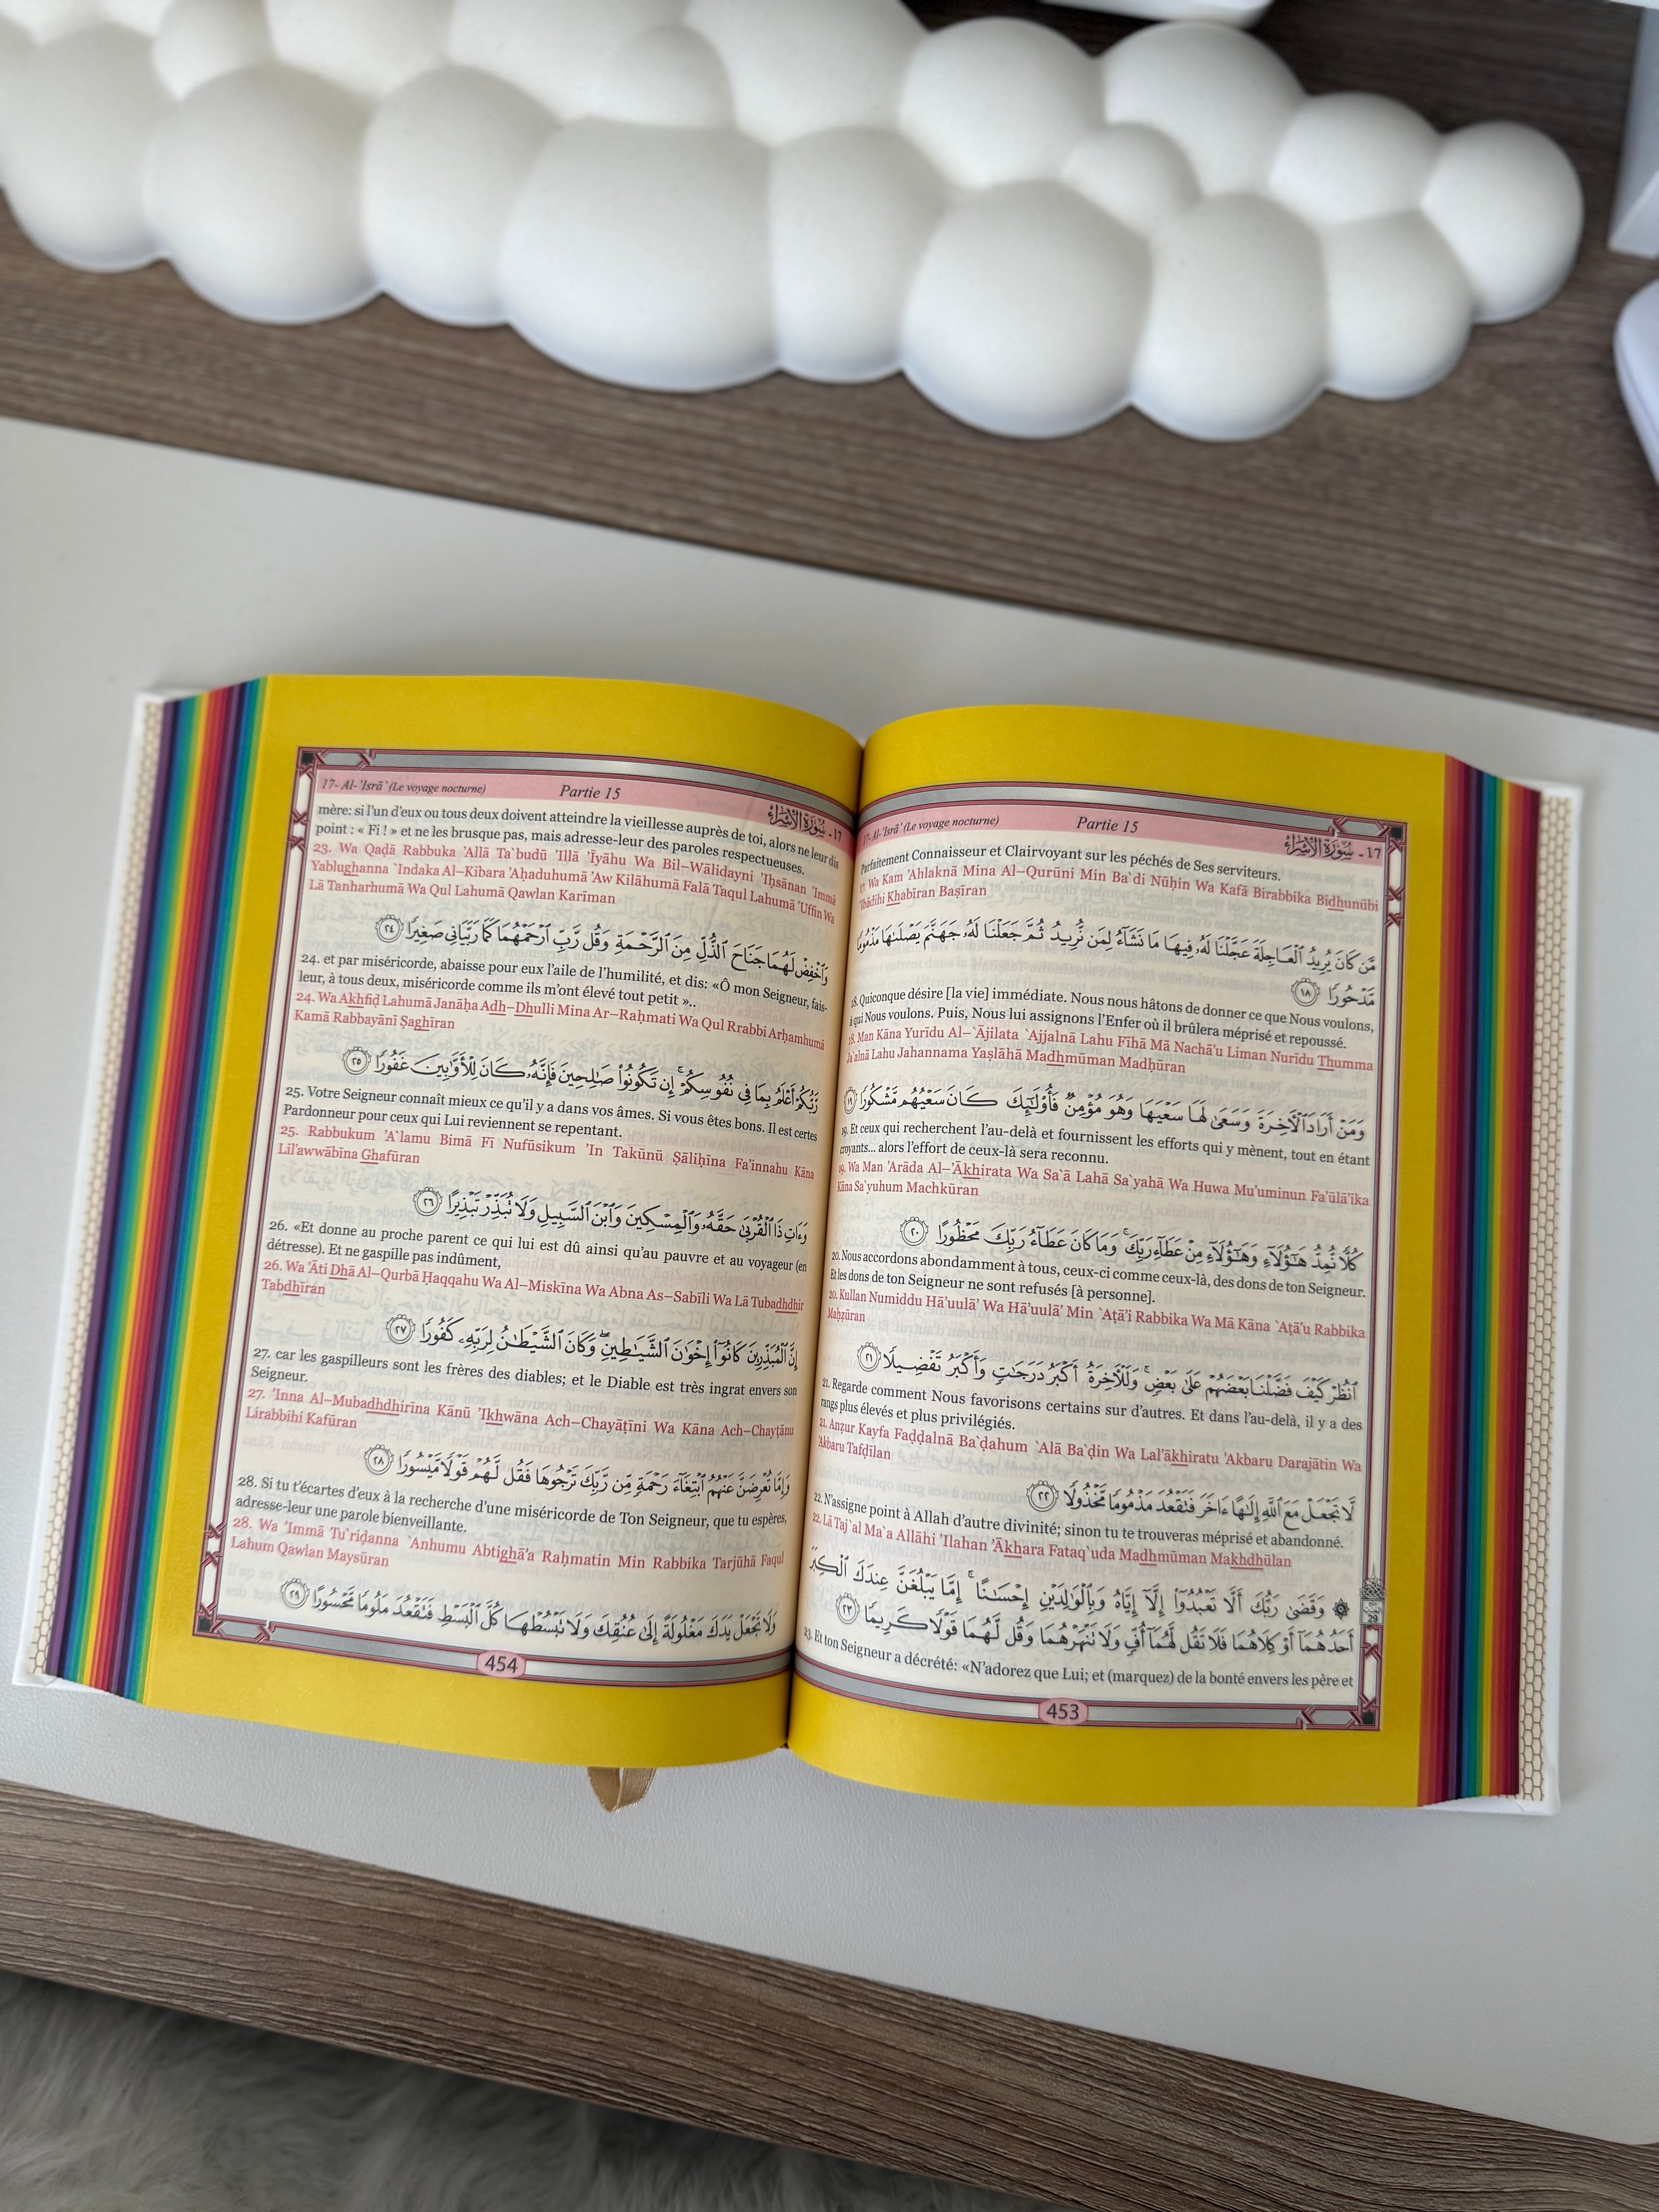 17- Al-'Isrā' (Le voyage nocturne) Partie 15 سُورَةُ الْإِسْرَاءِ - ١٧
Parfaitement Connaisseur et Clairvoyant sur les péchés de Ses serviteurs.
17. Wa Kam 'Ahlaknā Mina Al–Qurūni Min Ba`di Nūĥin Wa Kafá Birabbika Bidhunūbi
`Ibādihi Khabīran Baṣīran
مَّن كَانَ يُرِيدُ ٱلْعَاجِلَةَ عَجَّلْنَا لَهُۥ فِيهَا مَا نَشَآءُ لِمَن نُّرِيدُ ثُمَّ جَعَلْنَا لَهُۥ جَهَنَّمَ يَصْلَىٰهَا مَذْمُومًا
مَّدْحُورًا ١٨
18. Quiconque désire [la vie] immédiate. Nous nous hâtons de donner ce que Nous voulons,
à qui Nous voulons. Puis, Nous lui assignons l'Enfer où il brûlera méprisé et repoussé.
18. Man Kāna Yurīdu Al–`Ājilata `Ajjalnā Lahu Fīhā Mā Nachā'u Liman Nurīdu Thumma
Ja`alnā Lahu Jahannama Yaṣlāhā Madhmūman Madḥūran
وَمَنْ أَرَادَ ٱلْأَخِرَةَ وَسَعَىٰ لَهَا سَعْيَهَا وَهُوَ مُؤْمِنٌ فَأُو۟لَٰٓئِكَ كَانَ سَعْيُهُم مَّشْكُورًا ١٩
19. Et ceux qui recherchent l'au-delà et fournissent les efforts qui y mènent, tout en étant
croyants... alors l'effort de ceux-là sera reconnu.
19. Wa Man 'Arāda Al–'Ākhirata Wa Sa`ā Lahā Sa`yahā Wa Huwa Mu'uminun Fa'ūlā'ika
Kāna Sa`yuhum Machkūran
كُلًّا نُّمِدُّ هَٰٓؤُلَآءِ وَهَٰٓؤُلَآءِ مِنْ عَطَآءِ رَبِّكَ ۚ وَمَا كَانَ عَطَآءُ رَبِّكَ مَحْظُورًا ٢٠
20. Nous accordons abondamment à tous, ceux-ci comme ceux-là, des dons de ton Seigneur.
Et les dons de ton Seigneur ne sont refusés [à personne].
20. Kullan Numiddu Hā'uulā' Wa Hā'uulā' Min `Aṭā'i Rabbika Wa Mā Kāna `Aṭā'u Rabbika
Maḥẓūran
ٱنظُرْ كَيْفَ فَضَّلْنَا بَعْضَهُمْ عَلَىٰ بَعْضٍ ۚ وَلَلْأَخِرَةُ أَكْبَرُ دَرَجَٰتٍ وَأَكْبَرُ تَفْضِيلًا ٢١
21. Regarde comment Nous favorisons certains sur d'autres. Et dans l'au-delà, il y a des
rangs plus élevés et plus privilégiés.
21. Anẓur Kayfa Faḍḍalnā Ba`ḍahum `Alā Ba`ḍin Wa Lal'ākhiratu 'Akbaru Darajātin Wa
'Akbaru Tafḍīlan
لَّا تَجْعَلْ مَعَ ٱللَّهِ إِلَٰهًا ءَاخَرَ فَتَقْعُدَ مَذْمُومًا مَّخْذُولًا ٢٢
22. N'assigne point à Allah d'autre divinité; sinon tu te trouveras méprisé et abandonné.
22. Lā Taj`al Ma`a Allāhi 'Ilahan 'Ākhara Fataq`uda Madhmūman Makhdhūlan
۞ وَقَضَىٰ رَبُّكَ أَلَّا تَعْبُدُوٓا۟ إِلَّآ إِيَّاهُ وَبِٱلْوَٰلِدَيْنِ إِحْسَٰنًا ۚ إِمَّا يَبْلُغَنَّ عِندَكَ ٱلْكِبَرَ
29
أَحَدُهُمَآ أَوْ كِلَاهُمَا فَلَا تَقُل لَّهُمَآ أُفٍّ وَلَا تَنْهَرْهُمَا وَقُل لَّهُمَا قَوْلًا كَرِيمًا ٢٣
23. Et ton Seigneur a décrété: «N'adorez que Lui; et (marquez) de la bonté envers les père et
453
17- Al-'Isrā' (Le voyage nocturne) Partie 15 سُورَةُ الْإِسْرَاءِ - ١٧
mère: si l'un d'eux ou tous deux doivent atteindre la vieillesse auprès de toi, alors ne leur dis
point : « Fi ! » et ne les brusque pas, mais adresse-leur des paroles respectueuses.
23. Wa Qaḍā Rabbuka 'Allā Ta`budū 'Illā 'Īyāhu Wa Bil–Wālidayni 'Iḥsānan 'Immā
Yablughanna `Indaka Al–Kibara 'Aḥaduhumā 'Aw Kilāhumā Falā Taqul Lahumā 'Uffin Wa
Lā Tanharhumā Wa Qul Lahumā Qawlan Karīman
وَٱخْفِضْ لَهُمَا جَنَاحَ ٱلذُّلِّ مِنَ ٱلرَّحْمَةِ وَقُل رَّبِّ ٱرْحَمْهُمَا كَمَا رَبَّيَانِى صَغِيرًا ٢٤
24. et par miséricorde, abaisse pour eux l'aile de l'humilité, et dis: «Ô mon Seigneur, fais-
leur, à tous deux, miséricorde comme ils m'ont élevé tout petit »..
24. Wa Akhfiḍ Lahumā Janāḥa Adh–Dhulli Mina Ar–Raḥmati Wa Qul Rrabbi Arḥamhumā
Kamā Rabbayānī Ṣaghīran
رَّبُّكُمْ أَعْلَمُ بِمَا فِى نُفُوسِكُمْ ۚ إِن تَكُونُوا۟ صَٰلِحِينَ فَإِنَّهُۥ كَانَ لِلْأَوَّٰبِينَ غَفُورًا ٢٥
25. Votre Seigneur connaît mieux ce qu'il y a dans vos âmes. Si vous êtes bons. Il est certes
Pardonneur pour ceux qui Lui reviennent se repentant.
25. Rabbukum 'A`lamu Bimā Fī Nufūsikum 'In Takūnū Ṣāliḥīna Fa'innahu Kāna
Lil'awwābīna Ghafūran
وَءَاتِ ذَا ٱلْقُرْبَىٰ حَقَّهُۥ وَٱلْمِسْكِينَ وَٱبْنَ ٱلسَّبِيلِ وَلَا تُبَذِّرْ تَبْذِيرًا ٢٦
26. «Et donne au proche parent ce qui lui est dû ainsi qu'au pauvre et au voyageur (en
détresse). Et ne gaspille pas indûment,
26. Wa 'Āti Dhā Al–Qurbā Ḥaqqahu Wa Al–Miskīna Wa Abna As–Sabīli Wa Lā Tubadhdhir
Tabdhīran
إِنَّ ٱلْمُبَذِّرِينَ كَانُوٓا۟ إِخْوَٰنَ ٱلشَّيَٰطِينِ ۖ وَكَانَ ٱلشَّيْطَٰنُ لِرَبِّهِۦ كَفُورًا ٢٧
27. car les gaspilleurs sont les frères des diables; et le Diable est très ingrat envers son
Seigneur.
27. 'Inna Al–Mubadhdhirīna Kānū 'Ikhwāna Ach–Chayāṭīni Wa Kāna Ach–Chayṭānu
Lirabbihi Kafūran
وَإِمَّا تُعْرِضَنَّ عَنْهُمُ ٱبْتِغَآءَ رَحْمَةٍ مِّن رَّبِّكَ تَرْجُوهَا فَقُل لَّهُمْ قَوْلًا مَّيْسُورًا ٢٨
28. Si tu t'écartes d'eux à la recherche d'une miséricorde de Ton Seigneur, que tu espères,
adresse-leur une parole bienveillante.
28. Wa 'Immā Tu`riḍanna `Anhumu Abtighā'a Raḥmatin Min Rabbika Tarjūhā Faqul
Lahum Qawlan Maysūran
وَلَا تَجْعَلْ يَدَكَ مَغْلُولَةً إِلَىٰ عُنُقِكَ وَلَا تَبْسُطْهَا كُلَّ ٱلْبَسْطِ فَتَقْعُدَ مَلُومًا مَّحْسُورًا ٢٩
454